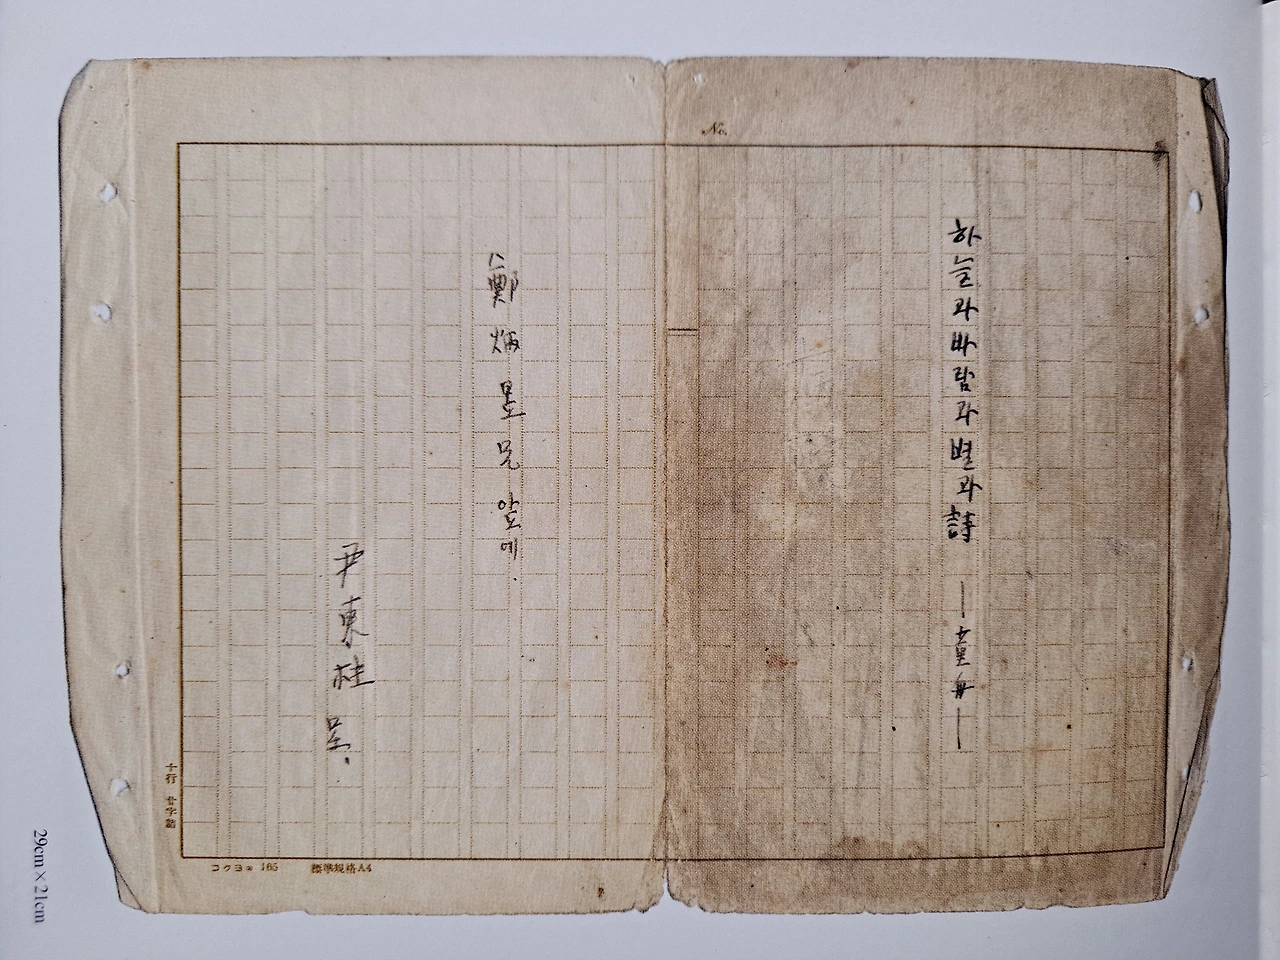 No.
하늘과바람과별과詩 — 童舟 —
鄭炳昱兄앞에.
尹東柱 呈.
十行 廿字詰
コクヨ 165 標準規格A4
29cm × 21cm